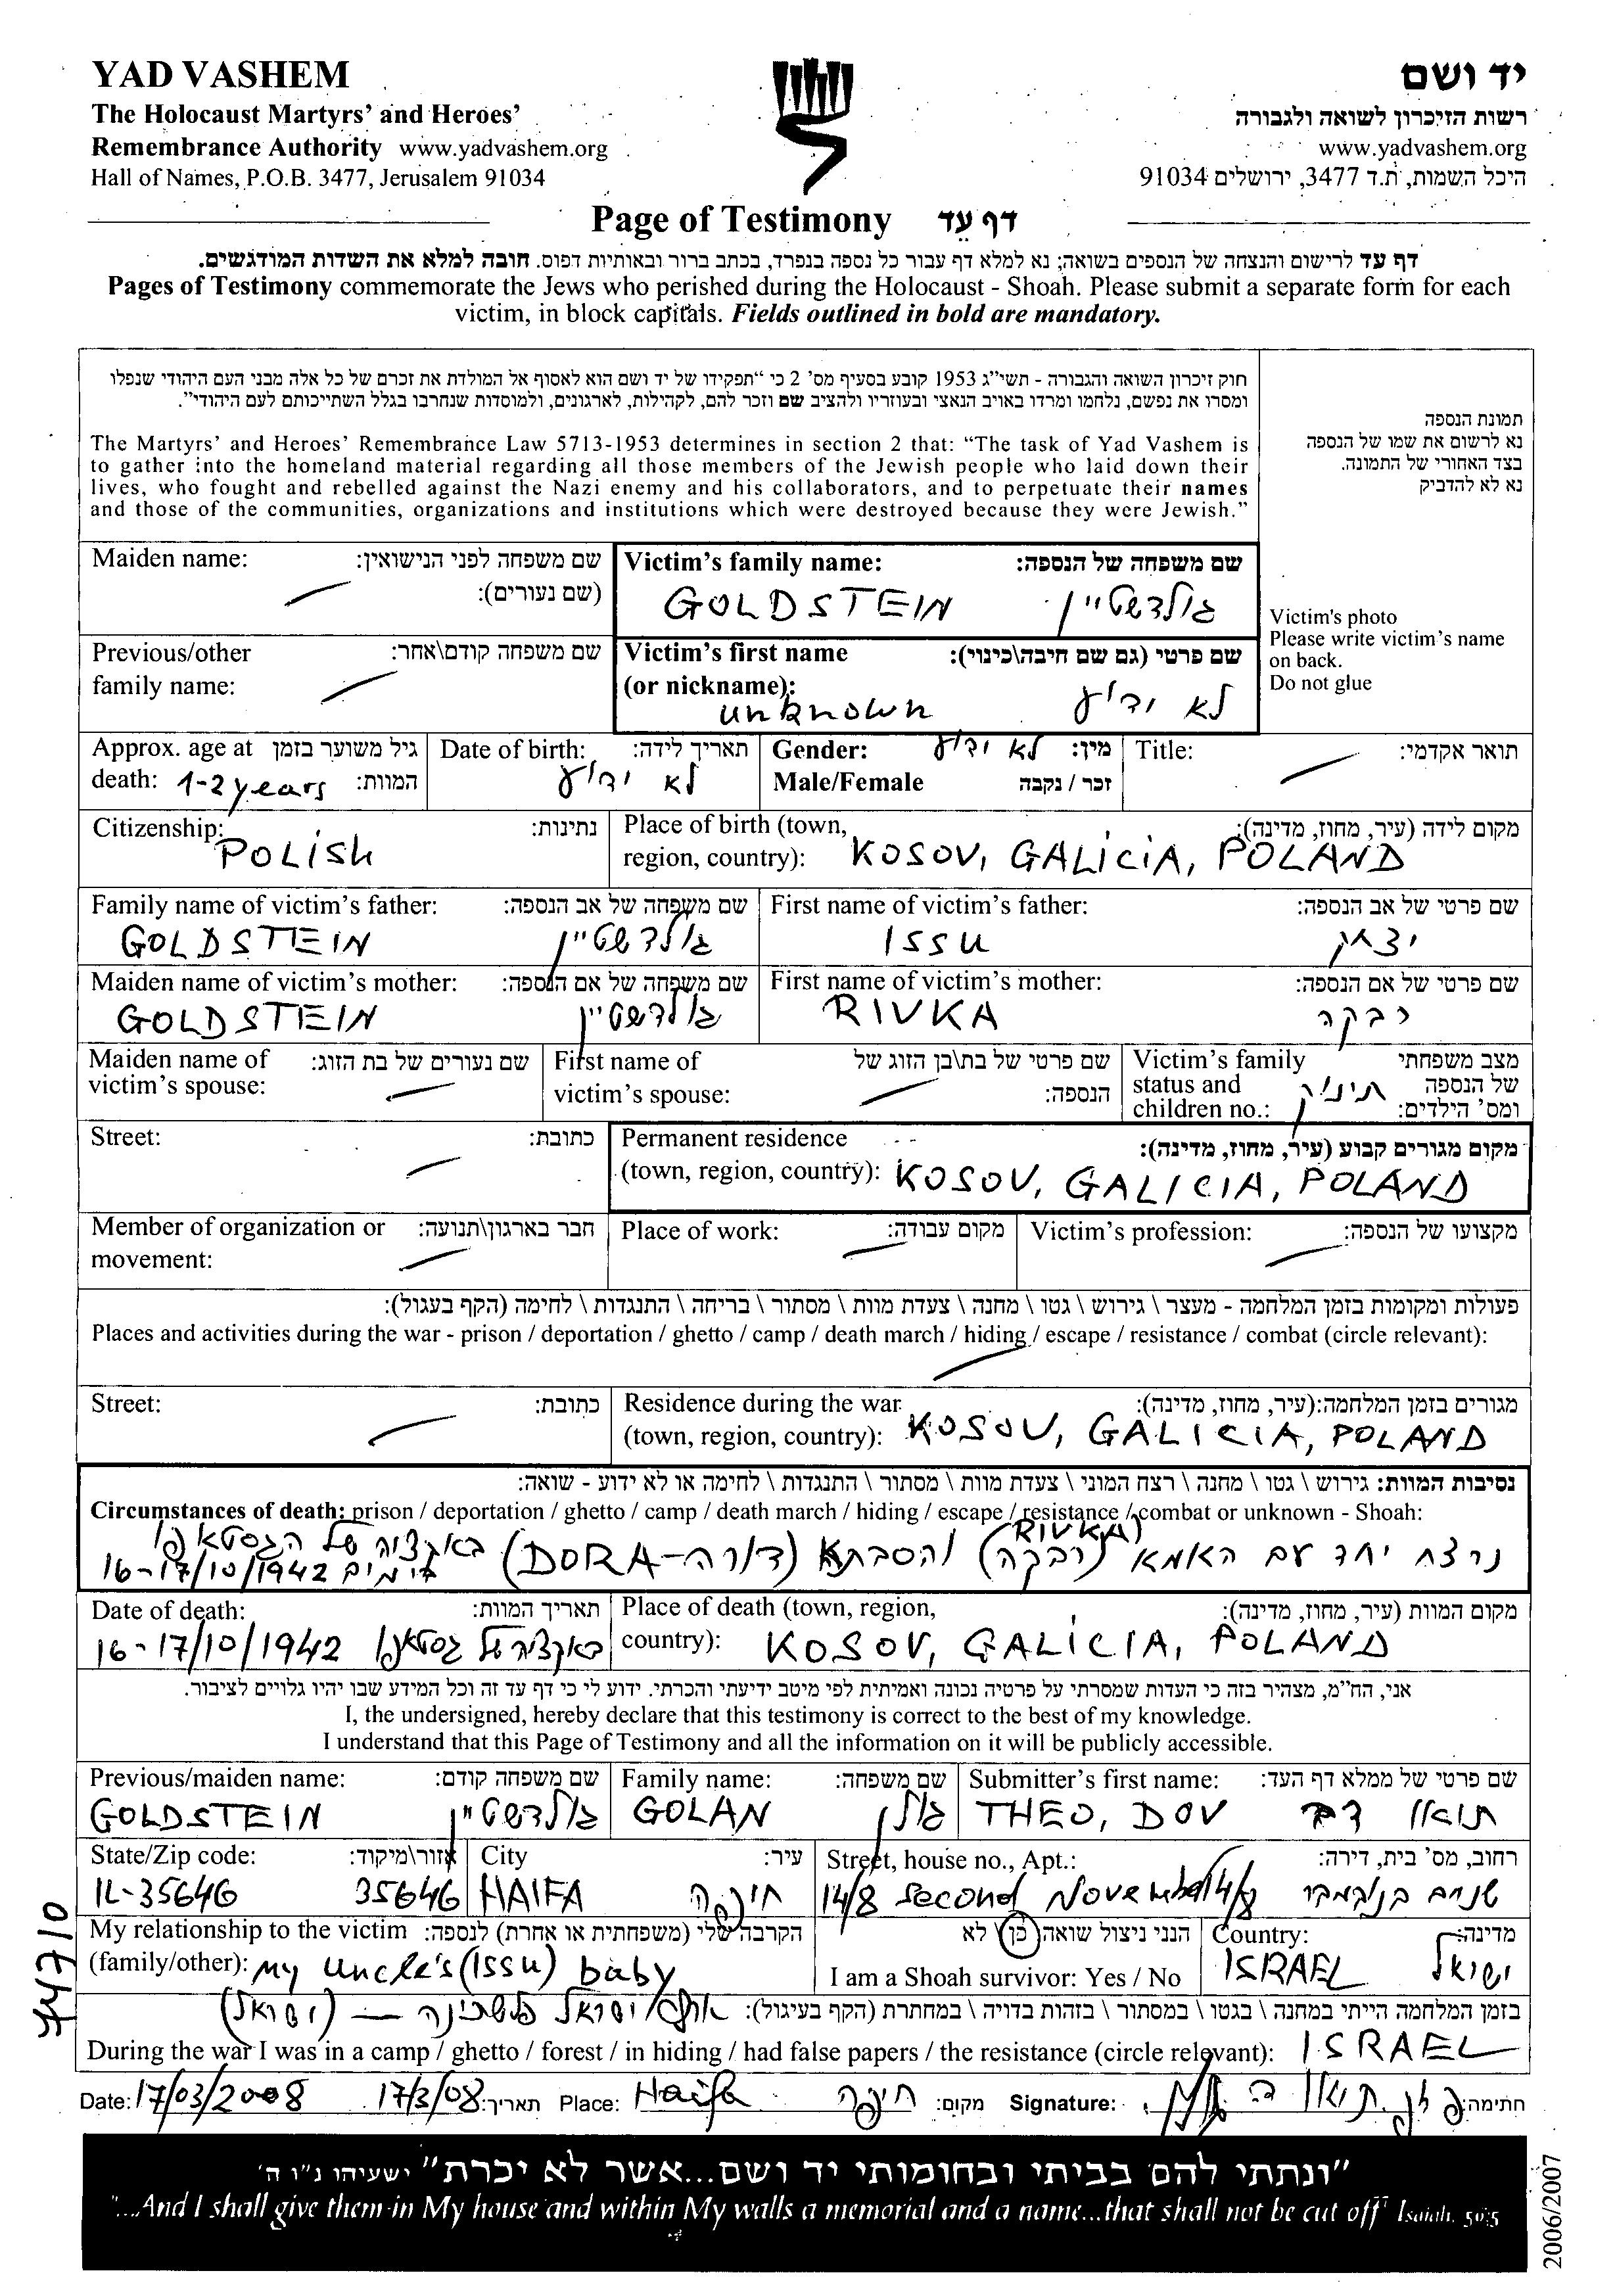 YAD VASHEM
The Holocaust Martyrs' and Heroes'
Remembrance Authority www.yadvashem.org
Hall of Names, P.O.B. 3477, Jerusalem 91034
יד ושם
רשות הזיכרון לשואה ולגבורה
www.yadvashem.org
היכל השמות, ת.ד 3477, ירושלים 91034
Page of Testimony דף עד
דף עד לרישום והנצחה של הנספים בשואה; נא למלא דף עבור כל נספה בנפרד, בכתב ברור ובאותיות דפוס. חובה למלא את השדות המודגשים.
Pages of Testimony commemorate the Jews who perished during the Holocaust - Shoah. Please submit a separate form for each
victim, in block capitals. Fields outlined in bold are mandatory.
חוק זיכרון השואה והגבורה - תשי"ג 1953 קובע בסעיף מס' 2 כי "תפקידו של יד ושם הוא לאסוף אל המולדת את זכרם של כל אלה מבני העם היהודי שנפלו
ומסרו את נפשם, נלחמו ומרדו באויב הנאצי ובעוזריו ולהציב שם וזכר להם, לקהילות, לארגונים, ולמוסדות שנחרבו בגלל השתייכותם לעם היהודי".
The Martyrs' and Heroes' Remembrance Law 5713-1953 determines in section 2 that: "The task of Yad Vashem is
to gather into the homeland material regarding all those members of the Jewish people who laid down their
lives, who fought and rebelled against the Nazi enemy and his collaborators, and to perpetuate their names
and those of the communities, organizations and institutions which were destroyed because they were Jewish."
תמונת הנספה
נא לרשום את שמו של הנספה
בצד האחורי של התמונה.
נא לא להדביק
Victim's photo
Please write victim's name
on back.
Do not glue
Maiden name: שם משפחה לפני הנישואין:
(שם נעורים):
Victim's family name: שם משפחה של הנספה:
GOLDSTEIN גולדשטיין
Previous/other שם משפחה קודם\אחר:
family name:
Victim's first name שם פרטי (גם שם חיבה\כינוי):
(or nickname):
unknown לא ידוע
Approx. age at גיל משוער בזמן
death: 1-2 years המוות:
Date of birth: תאריך לידה:
לא ידוע
Gender: לא ידוע מין:
Male/Female זכר / נקבה
Title: תואר אקדמי:
Citizenship: נתינות:
POLISH
Place of birth (town, מקום לידה (עיר, מחוז, מדינה):
region, country): KOSOV, GALICIA, POLAND
Family name of victim's father: שם משפחה של אב הנספה:
GOLDSTEIN גולדשטיין
First name of victim's father: שם פרטי של אב הנספה:
ISSU יצחק
Maiden name of victim's mother: שם משפחה של אם הנספה:
GOLDSTEIN גולדשטיין
First name of victim's mother: שם פרטי של אם הנספה:
RIVKA רבקה
Maiden name of שם נעורים של בת הזוג:
victim's spouse:
First name of שם פרטי של בת\בן הזוג של
victim's spouse: הנספה:
Victim's family מצב משפחתי
status and תינוק של הנספה
children no.: ומס' הילדים:
Street: כתובת:
Permanent residence מקום מגורים קבוע (עיר, מחוז, מדינה):
(town, region, country): KOSOV, GALICIA, POLAND
Member of organization or חבר בארגון\תנועה:
movement:
Place of work: מקום עבודה:
Victim's profession: מקצועו של הנספה:
פעולות ומקומות בזמן המלחמה - מעצר \ גירוש \ גטו \ מחנה \ צעדת מוות \ מסתור \ בריחה \ התנגדות \ לחימה (הקף בעגול):
Places and activities during the war - prison / deportation / ghetto / camp / death march / hiding / escape / resistance / combat (circle relevant):
Street: כתובת:
Residence during the war מגורים בזמן המלחמה:(עיר, מחוז, מדינה):
(town, region, country): KOSOV, GALICIA, POLAND
נסיבות המוות: גירוש \ גטו \ מחנה \ רצח המוני \ צעדת מוות \ מסתור \ התנגדות \ לחימה או לא ידוע - שואה:
Circumstances of death: prison / deportation / ghetto / camp / death march / hiding / escape / resistance / combat or unknown - Shoah:
(RIVKA)
נרצח יחד עם האמא (רבקה) והסבתא (דורה-DORA) באקציה של הגסטאפו
בימים 16-17/10/1942
Date of death: תאריך המוות:
16-17/10/1942 באקציה של גסטאפו
Place of death (town, region, מקום המוות (עיר, מחוז, מדינה):
country): KOSOV, GALICIA, POLAND
אני, הח"מ, מצהיר בזה כי העדות שמסרתי על פרטיה נכונה ואמיתית לפי מיטב ידיעתי והכרתי. ידוע לי כי דף עד זה וכל המידע שבו יהיו גלויים לציבור.
I, the undersigned, hereby declare that this testimony is correct to the best of my knowledge.
I understand that this Page of Testimony and all the information on it will be publicly accessible.
Previous/maiden name: שם משפחה קודם:
GOLDSTEIN גולדשטיין
Family name: שם משפחה:
GOLAN גולן
Submitter's first name: שם פרטי של ממלא דף העד:
THEO, DOV תואו דב
State/Zip code: אזור\מיקוד:
IL-35646 35646
City עיר:
HAIFA חיפה
Street, house no., Apt.: רחוב, מס' בית, דירה:
14/8 Second November 14/8 שנחם בנובמבר
My relationship to the victim הקרבה שלי (משפחתית או אחרת) לנספה:
(family/other): My uncle's (ISSU) baby
הנני ניצול שואה: כן \ לא
I am a Shoah survivor: Yes / No
Country: מדינה:
ISRAEL ישראל
בזמן המלחמה הייתי במחנה \ בגטו \ במסתור \ בזהות בדויה \ במחתרת (הקף בעיגול): ישראל פלשתינה — (ישראל)
During the war I was in a camp / ghetto / forest / in hiding / had false papers / the resistance (circle relevant): ISRAEL
Date: 17/03/2008 17/3/08 תאריך: Place: Haifa חיפה מקום: Signature: חתימה:
"ונתתי להם בביתי ובחומותי יד ושם...אשר לא יכרת" ישעיהו נ"ו ה'
"...And I shall give them in My house and within My walls a memorial and a name...that shall not be cut off" Isaiah, 56:5
2006/2007